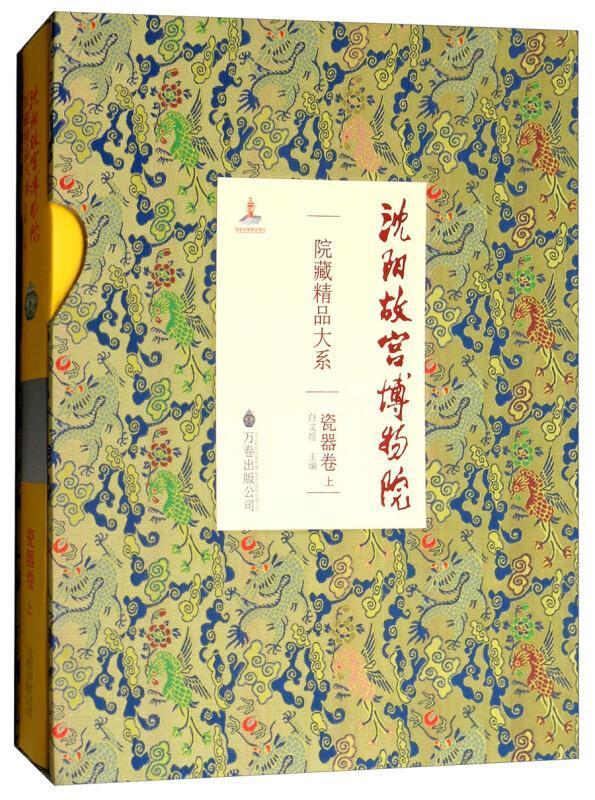 沈阳故宫博物院
院藏精品大系
瓷器卷 上
白文煜 主编
万卷出版公司
沈阳故宫博物院
瓷器卷 上